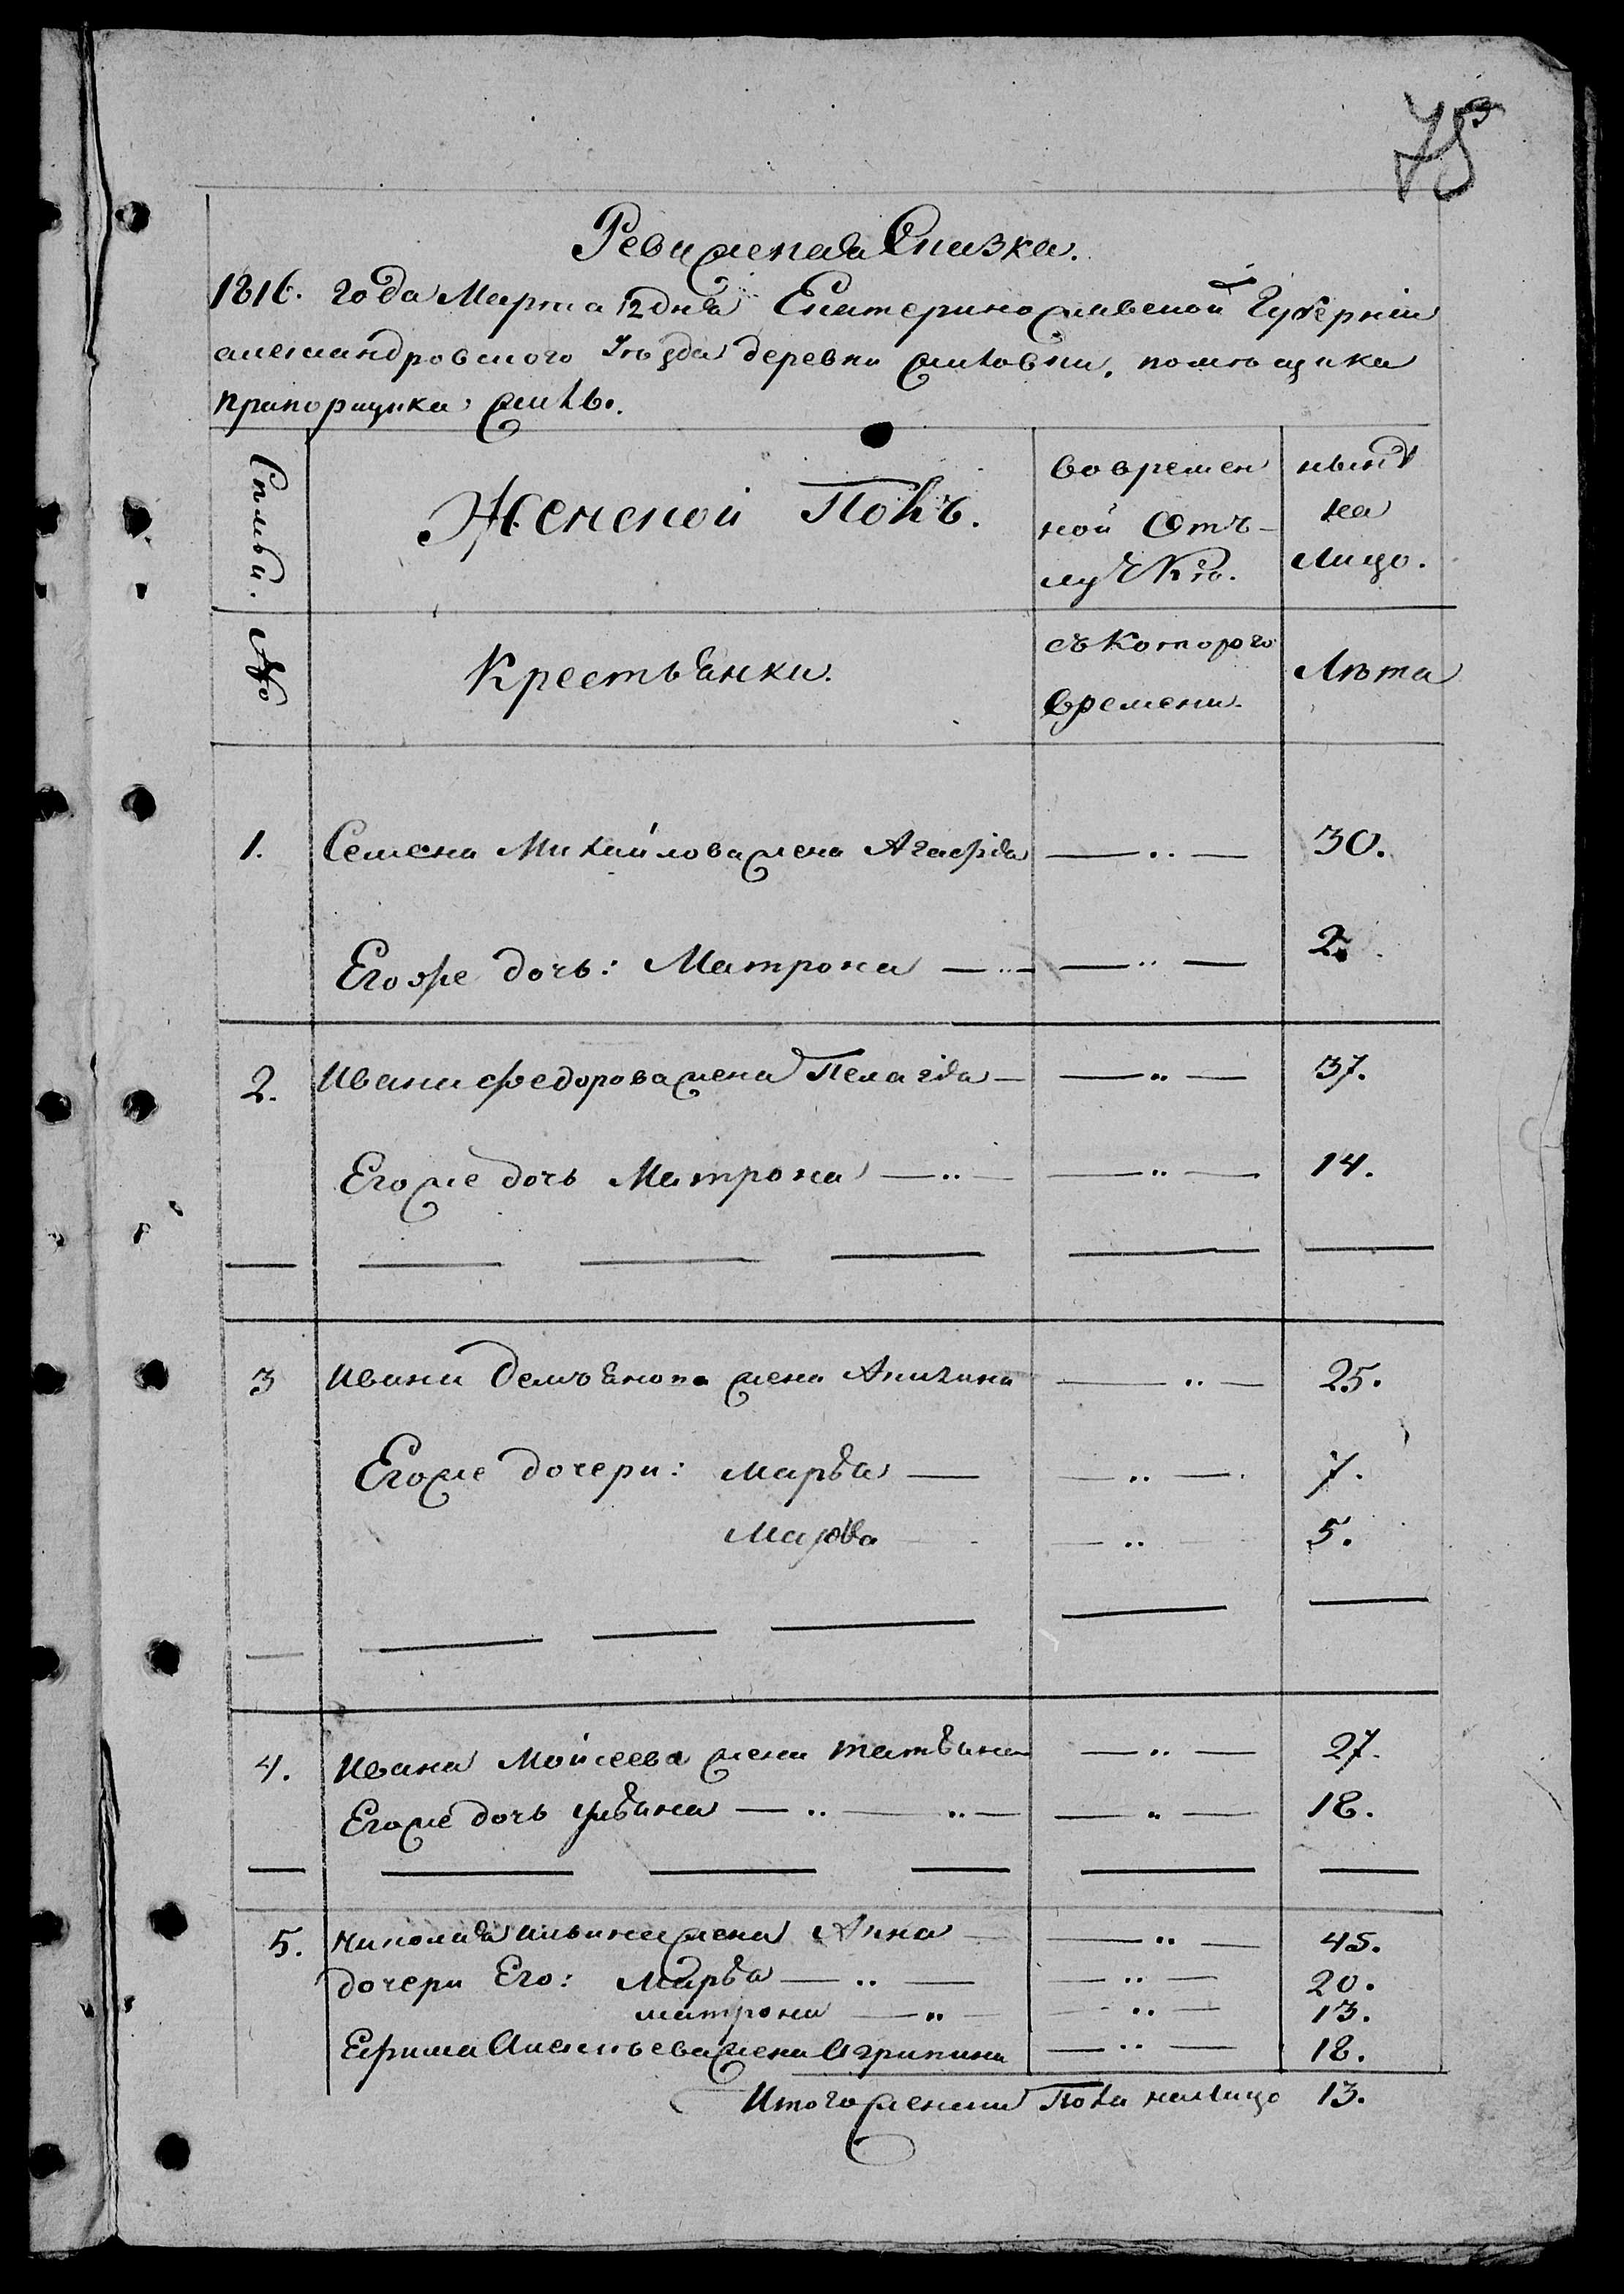 75
Ревижская Сказка.
1816. года Марта 12 дня Екатеринославской Губерніи
александровского Уъзда деревни помъщика
прапорщика
Семьи.
Женской Полъ.
во времен
ной Отъ-
лучкъ.
нынъ
на
лицо.
№
Крестьянки.
съ которого
времени.
Лъта
1. Семена Михайлова жена Агафія — .. — 30.
Егоже дочь: Матрона — .. — — .. — 2.
2. Ивана федорова жена Пелагія — — .. — 37.
Егоже дочь Матрона — .. — — .. — 14.
3 Ивана Демъянова жена — .. — 25.
Егоже дочери: Марья — — .. — 7.
— .. — 5.
4. Ивана Мойсеева жена татьяна — .. — 27.
Егоже дочь ульяна — .. — .. — — .. — 18.
5. николая ильина жена Анна — — .. — 45.
дочери Его: Марья — .. — — .. — 20.
матрона — .. — — .. — 13.
Ефима Алексъева жена Агрипина — .. — 18.
Итого женска Пола налицо 13.